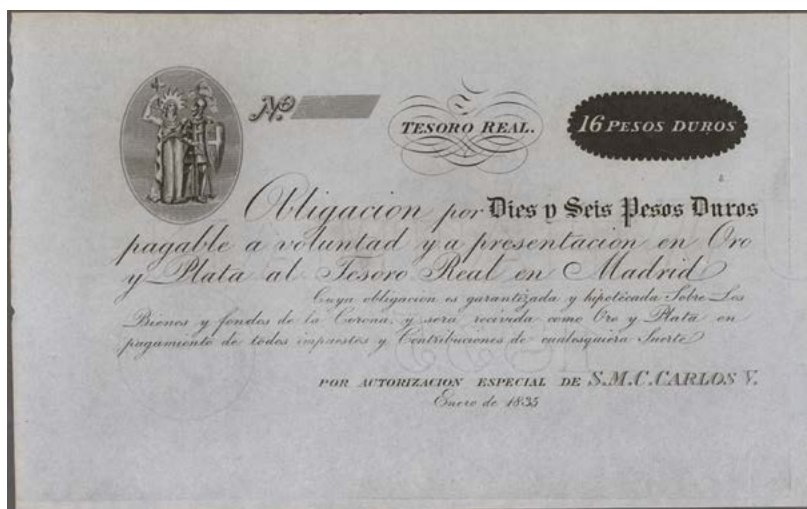 No
TESORO REAL.
16 PESOS DUROS
Obligacion por Dies y Seis Pesos Duros
pagable a voluntad y a presentacion en Oro
y Plata al Tesoro Real en Madrid
Cuya obligacion es garantizada y hipotécada Sobre Los
Bienes y fondos de la Corona, y será recivida como Oro y Plata en
pagamiento de todos impuestos y Contribuciones de cualesquiera Suerte
POR AUTORIZACION ESPECIAL DE S.M.C. CARLOS V.
Enero de 1835